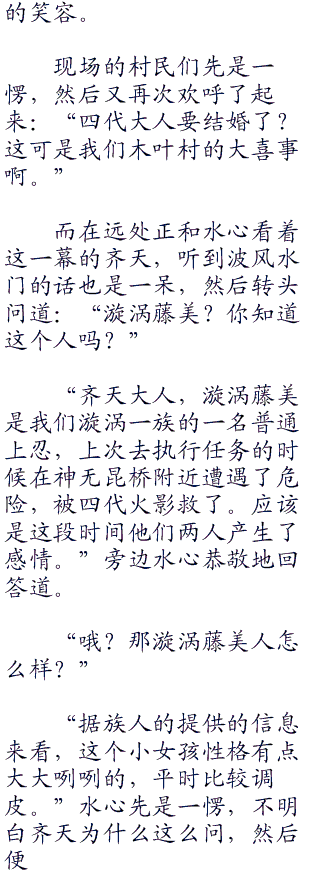 的笑容。
现场的村民们先是一
愣，然后又再次欢呼了起
来：“四代大人要结婚了？
这可是我们木叶村的大喜事
啊。”
而在远处正和水心看着
这一幕的齐天，听到波风水
门的话也是一呆，然后转头
问道：“漩涡藤美？你知道
这个人吗？”
“齐天大人，漩涡藤美
是我们漩涡一族的一名普通
上忍，上次去执行任务的时
候在神无昆桥附近遭遇了危
险，被四代火影救了。应该
是这段时间他们两人产生了
感情。”旁边水心恭敬地回
答道。
“哦？那漩涡藤美人怎
么样？”
“据族人的提供的信息
来看，这个小女孩性格有点
大大咧咧的，平时比较调
皮。”水心先是一愣，不明
白齐天为什么这么问，然后
便